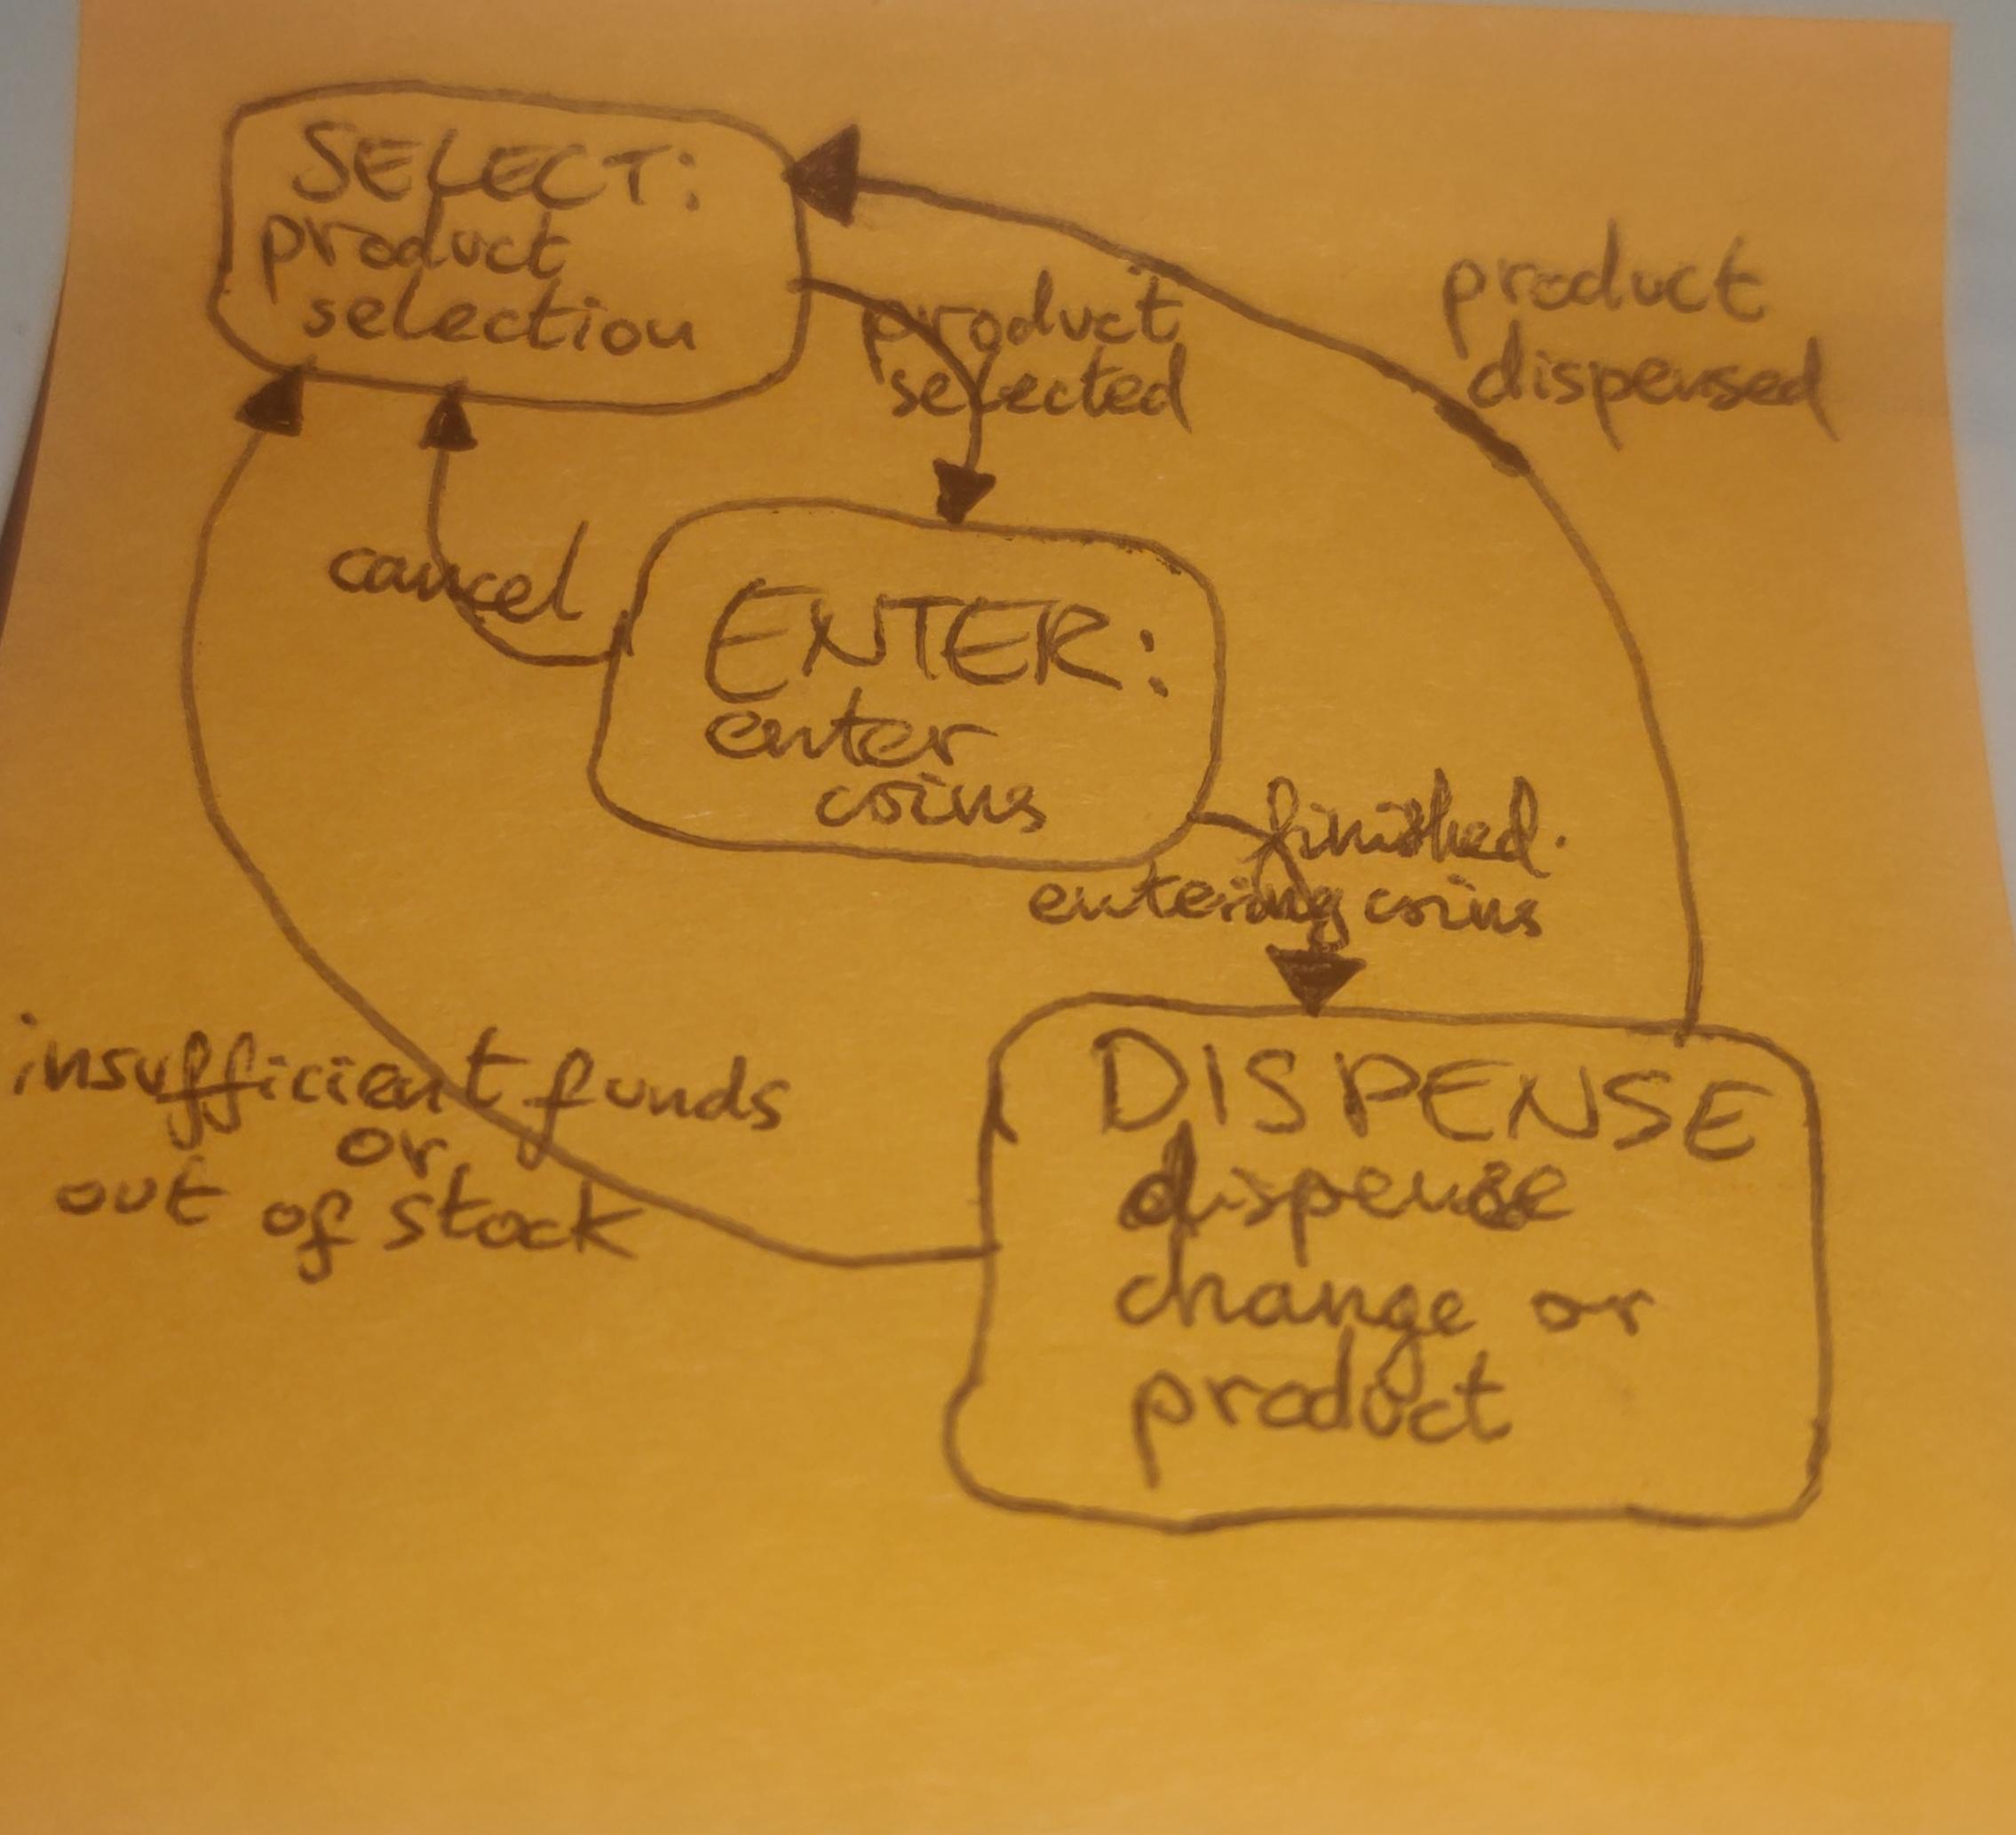 SELECT:
product
selection
product
selected
product
dispensed
cancel
ENTER:
enter
coins
finished
entering coins
insufficient funds
or
out of stock
DISPENSE
dispense
change or
product